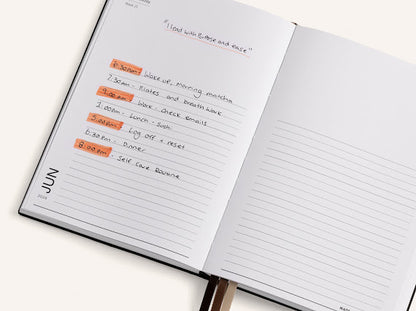 "I lead with purpose and ease"
6.30am: Wake up, morning matcha
7.30am - Pilates and breathwork
9.00am: Work - check emails
1.00pm - Lunch - Sushi
5.00pm: Log off + reset
6.30pm - Dinner
8.00pm - Self Care Routine
JUN